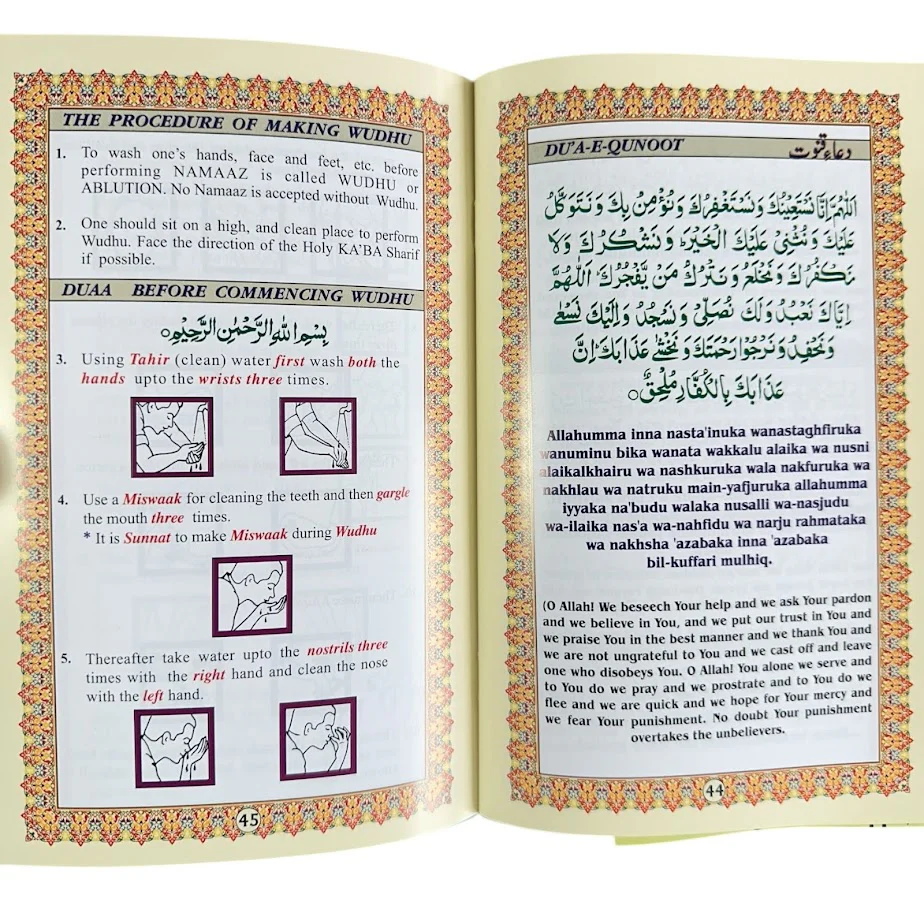 DU'A-E-QUNOOT دعاءِ قنوت
اَللّٰهُمَّ اِنَّا نَسْتَعِيْنُكَ وَنَسْتَغْفِرُكَ وَنُؤْمِنُ بِكَ وَنَتَوَكَّلُ
عَلَيْكَ وَنُثْنِيْ عَلَيْكَ الْخَيْرَ وَنَشْكُرُكَ وَلَا
نَكْفُرُكَ وَنَخْلَعُ وَنَتْرُكُ مَنْ يَّفْجُرُكَ اَللّٰهُمَّ
اِيَّاكَ نَعْبُدُ وَلَكَ نُصَلِّيْ وَنَسْجُدُ وَاِلَيْكَ نَسْعٰى
وَنَحْفِدُ وَنَرْجُوْا رَحْمَتَكَ وَنَخْشٰى عَذَابَكَ اِنَّ
عَذَابَكَ بِالْكُفَّارِ مُلْحِقٌ
Allahumma inna nasta'inuka wanastaghfiruka
wanuminu bika wanata wakkalu alaika wa nusni
alaikalkhairu wa nashkuruka wala nakfuruka wa
nakhlau wa natruku main-yafjuruka allahumma
iyyaka na'budu walaka nusalli wa-nasjudu
wa-ilaika nas'a wa-nahfidu wa narju rahmataka
wa nakhsha 'azabaka inna 'azabaka
bil-kuffari mulhiq.
(O Allah! We beseech Your help and we ask Your pardon
and we believe in You, and we put our trust in You and
we praise You in the best manner and we thank You and
we are not ungrateful to You and we cast off and leave
one who disobeys You. O Allah! You alone we serve and
to You do we pray and we prostrate and to You do we
flee and we are quick and we hope for Your mercy and
we fear Your punishment. No doubt Your punishment
overtakes the unbelievers.
44
THE PROCEDURE OF MAKING WUDHU
1. To wash one's hands, face and feet, etc. before
performing NAMAAZ is called WUDHU or
ABLUTION. No Namaaz is accepted without Wudhu.
2. One should sit on a high, and clean place to perform
Wudhu. Face the direction of the Holy KA'BA Sharif
if possible.
DUAA BEFORE COMMENCING WUDHU
بِسْمِ اللهِ الرَّحْمٰنِ الرَّحِيْمِ
3. Using Tahir (clean) water first wash both the
hands upto the wrists three times.
4. Use a Miswaak for cleaning the teeth and then gargle
the mouth three times.
* It is Sunnat to make Miswaak during Wudhu
5. Thereafter take water upto the nostrils three
times with the right hand and clean the nose
with the left hand.
45